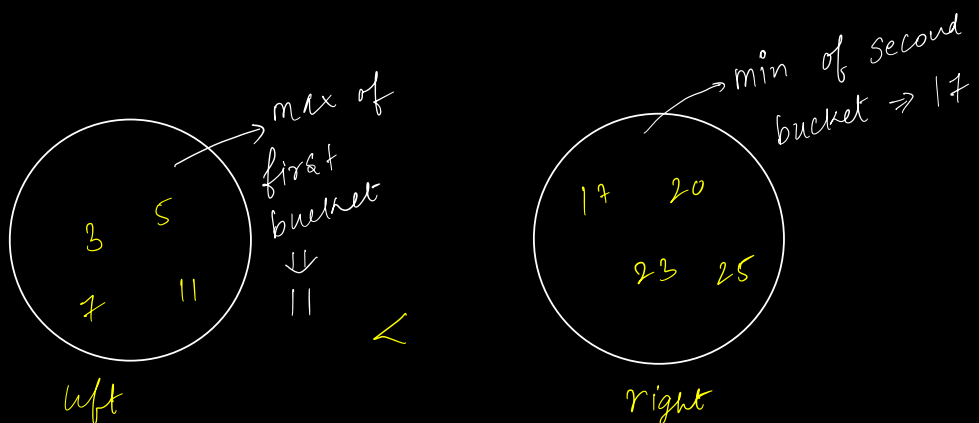 max of
first
bucket
⇓
11
3
5
7
11
left
<
min of second
bucket ⇒ 17
17 20
23 25
right